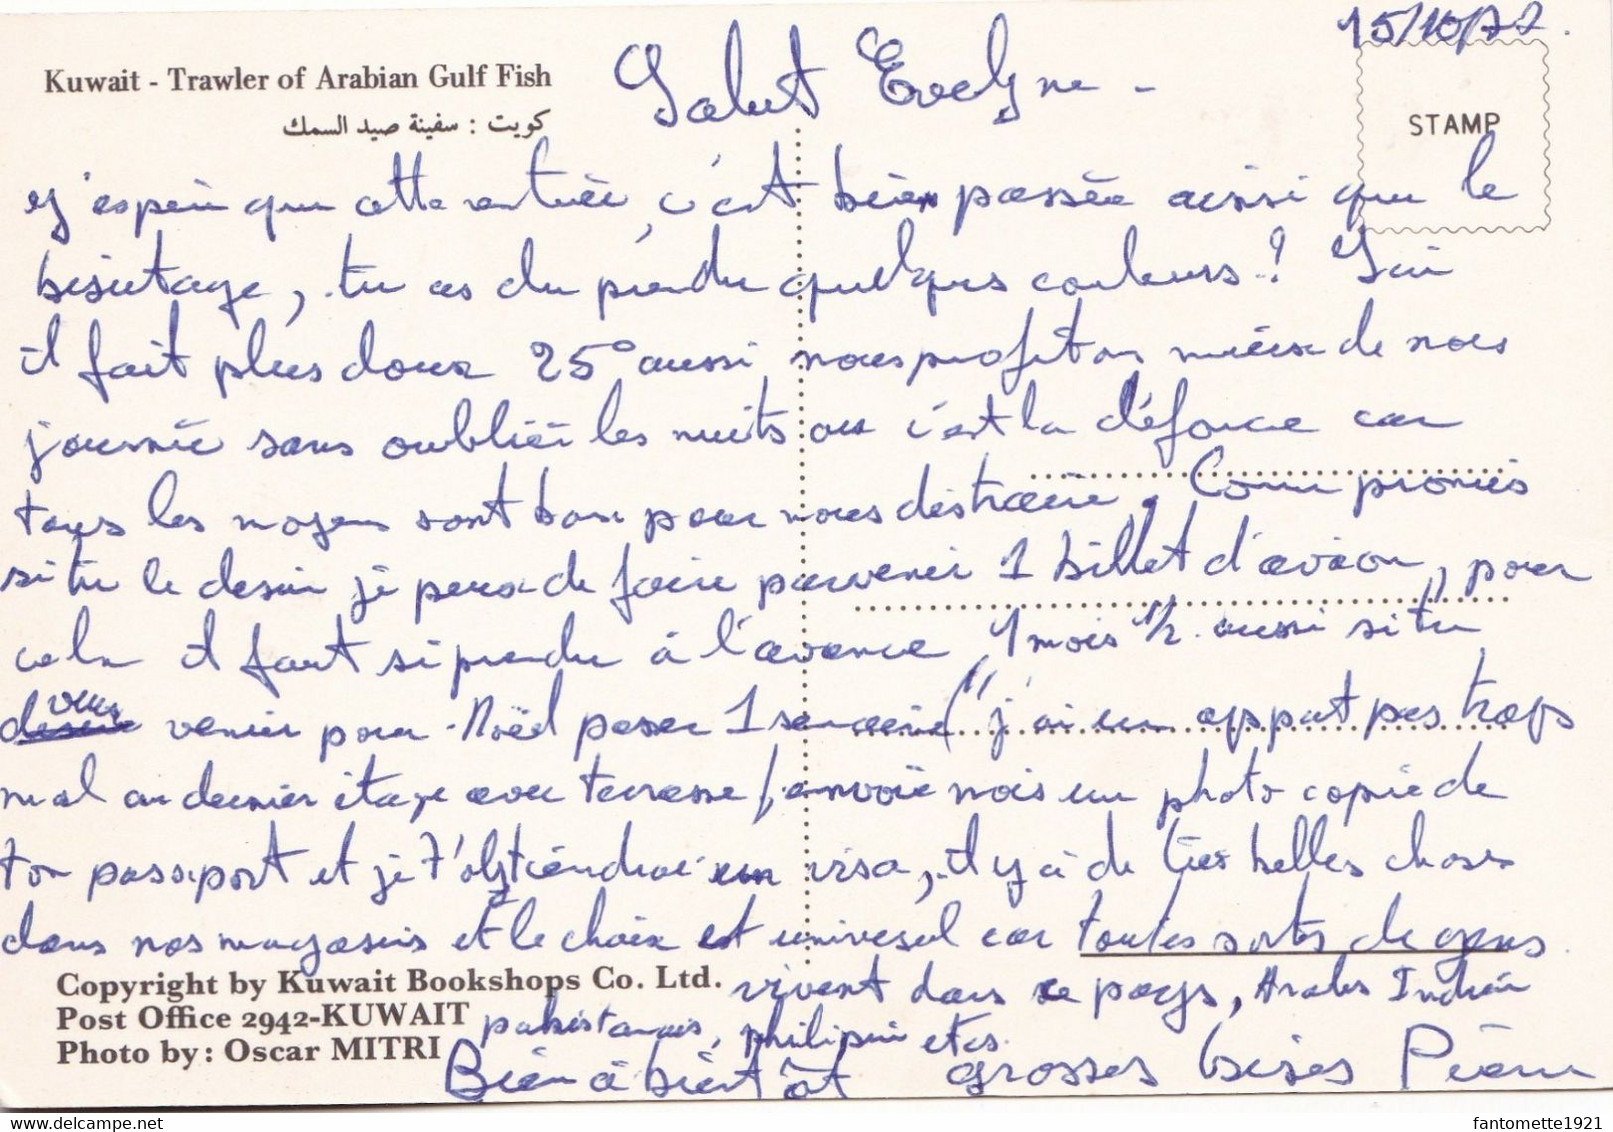 15/10/77.
Kuwait - Trawler of Arabian Gulf Fish
كويت : سفينة صيد السمك
Salut Evelyne -
STAMP
j'espèr que cette rentrée, c'est bien passée ainsi que le
bisutage, tu as du prendre quelques couleurs.! Ici
il fait plus doux 25° aussi nous profitons mieux de nos
journée sans oublier les nuits ou c'est la défonce car
tous les moyens sont bon pour nous distraire. Comme promis
si tu le desir je peux de faire parvenir 1 billet d'avion, pour
cela il faut si prendre à l'avance "1 mois 1/2. aussi si tu
veux venir pour Noël passer 1 semaine" j'ai un appart pas trop
mal au dernier étage avec terrasse, envoie mois un photo copie de
ton passeport et je t'obtiendrai un visa, il y à de très belles choses
dans nos magasins et le choix est universel car toutes sortes de gens
vivent dans ce pays, Arabes Indien
pakistanais, philipin etcs.
Bien à bientôt grosses bises Pierre
Copyright by Kuwait Bookshops Co. Ltd.
Post Office 2942-KUWAIT
Photo by: Oscar MITRI
fantomette1921
delcampe.net